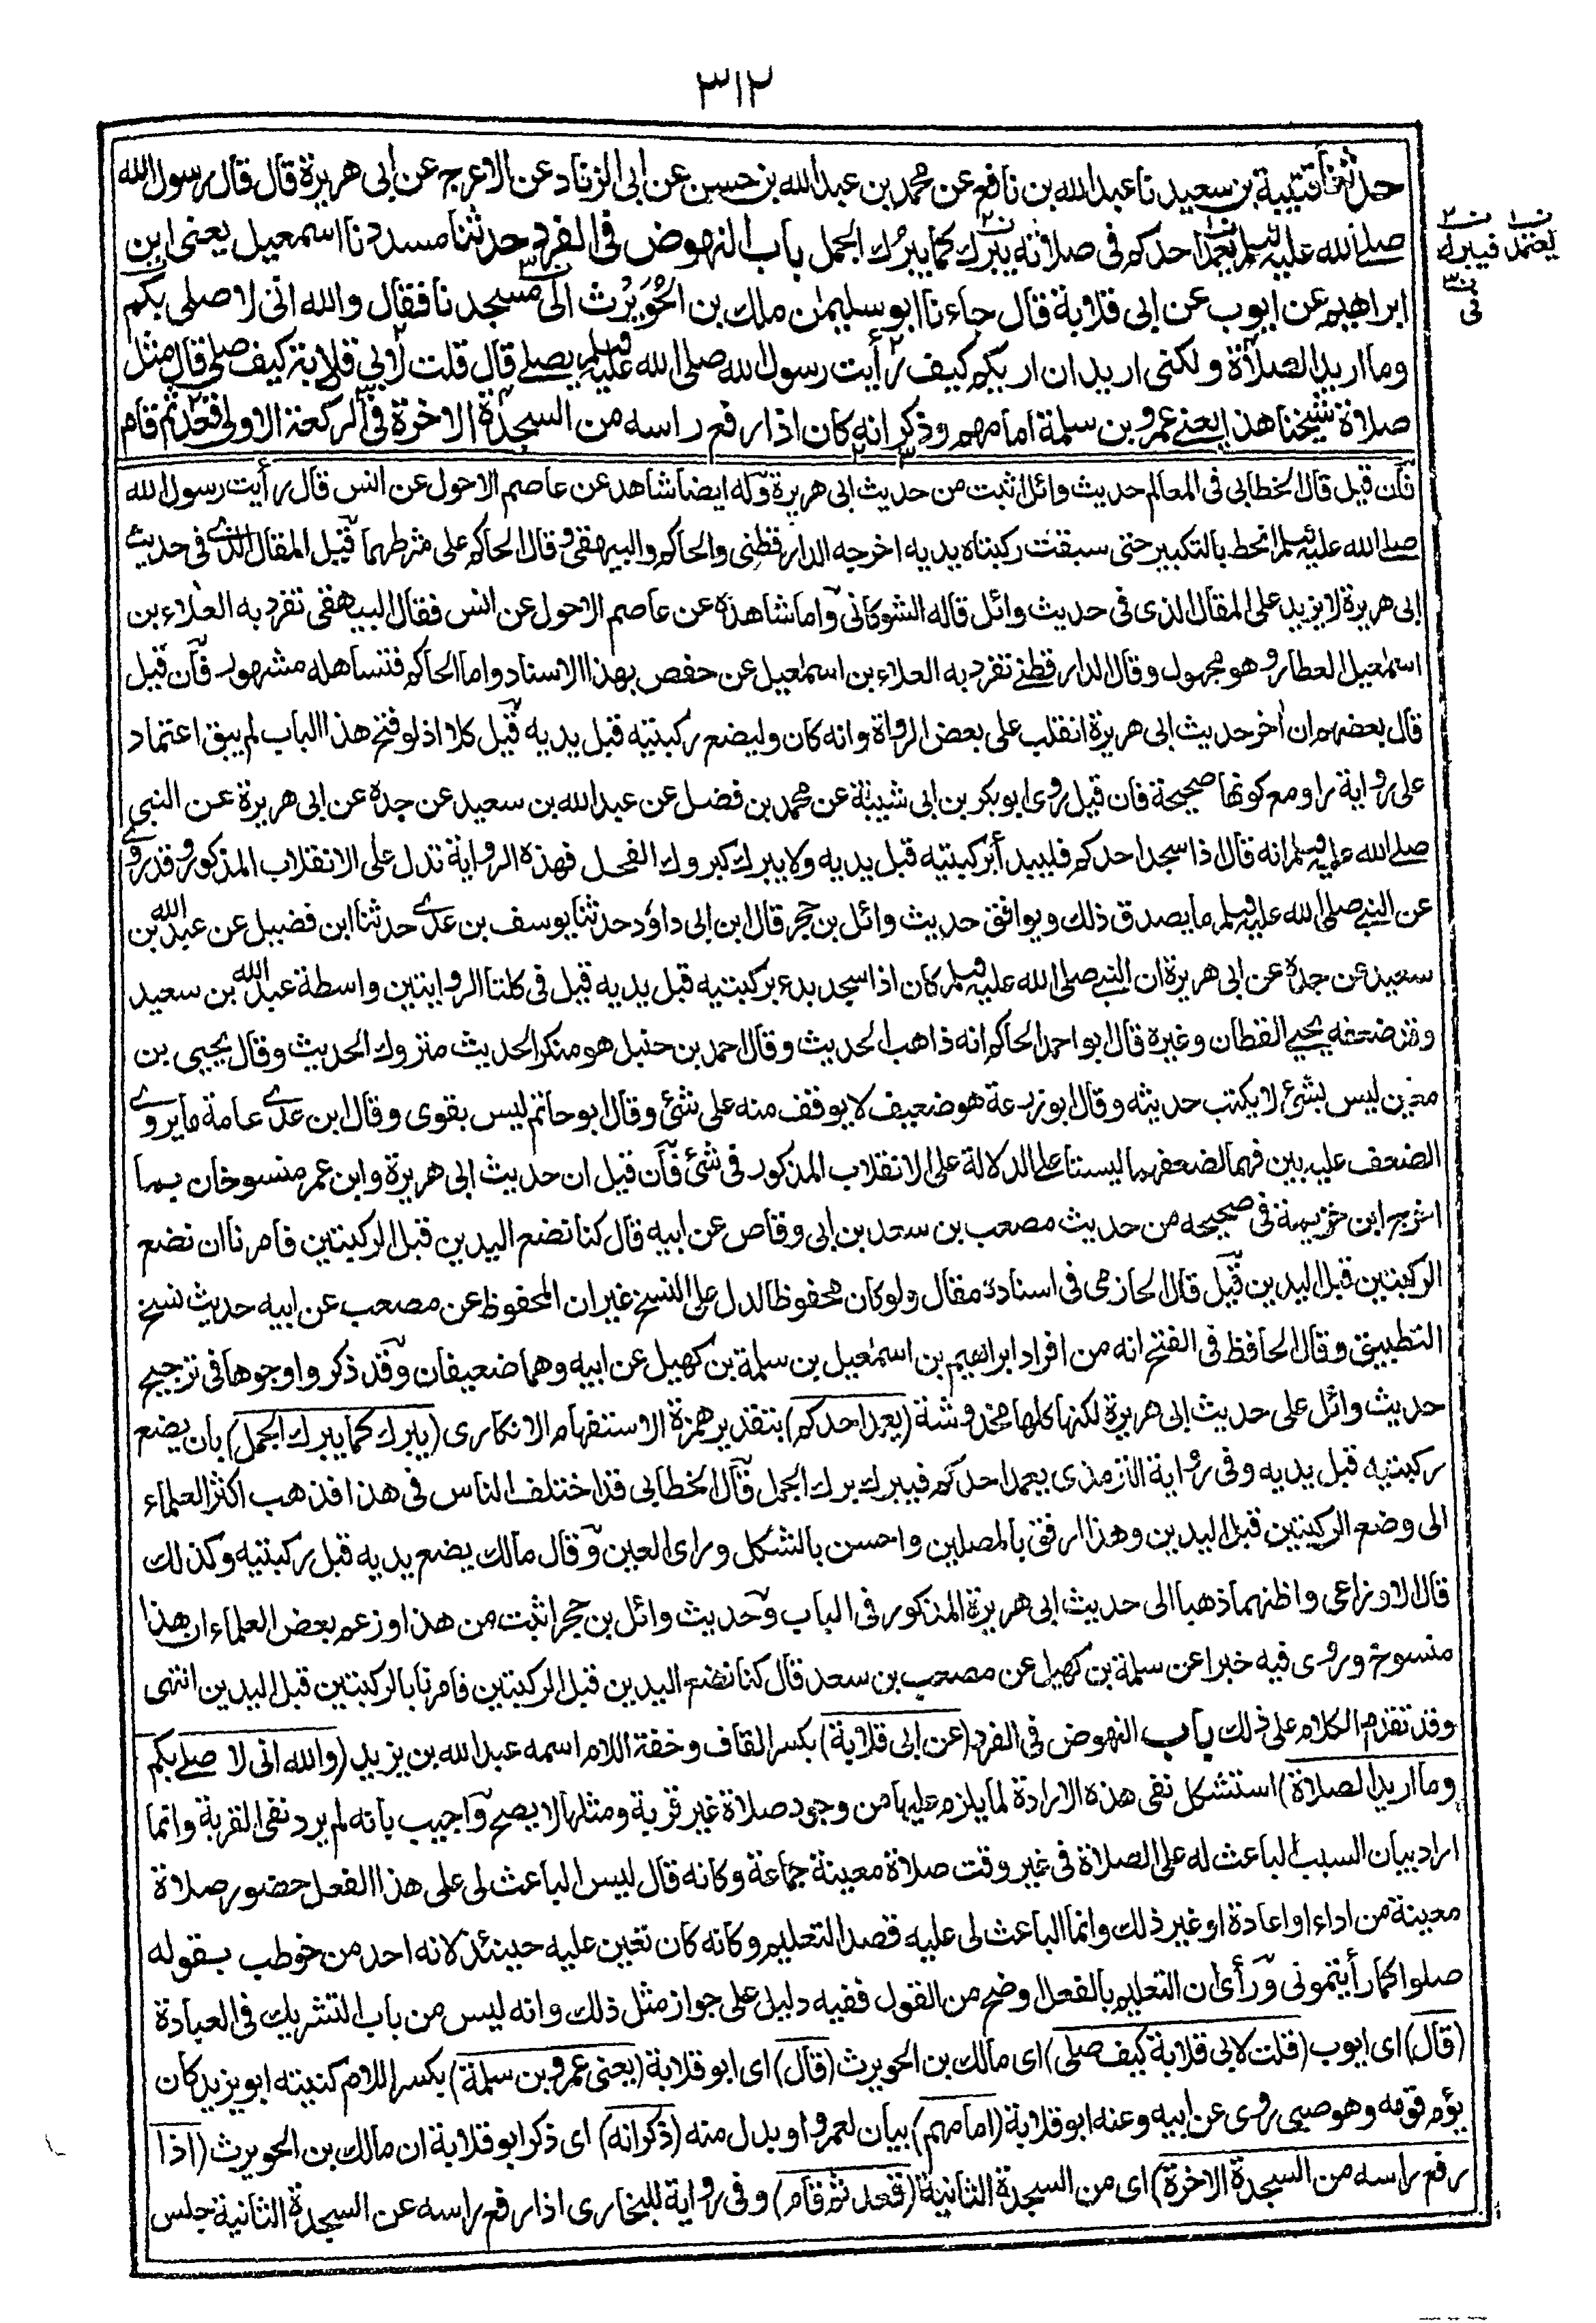 ٣١٢
حدثنا قتيبة بن سعيد نا عبد الله بن نافع عن محمد بن عبد الله بن حسن عن ابى الزناد عن الاعرج عن ابى هريرة قال قال رسول الله
صلى الله عليه وسلم يعمد احدكم فى صلاته يبرك كما يبرك الجمل باب النهوض فى الفرد حدثنا مسدد نا اسمعيل يعنى ابن
يعتمد فيبرك
فى
ابراهيم عن ايوب عن ابى قلابة قال جاءنا ابو سليمٰن ملك بن الحُوَيْرِث الى مسجدنا فقال والله انى لاصلى بكم
وما اريد الصلاة ولكنى اريد ان اريكم كيف رأيت رسول الله صلى الله عليه وسلم يصلى قال قلت لابى قلابة كيف صلى قال مثل
صلاة شيخنا هذا يعنى عمرو بن سلمة امامهم وذكر انه كان اذا رفع راسه من السجدة الاخرة فى الركعة الاولى قعد ثم قام
فآن قيل قال الخطابى فى المعالم حديث وائل اثبت من حديث ابى هريرة وله ايضا شاهد عن عاصم الاحول عن انس قال رأيت رسول الله
صلى الله عليه وسلم انحط بالتكبير حتى سبقت ركبتاه يديه اخرجه الدارقطنى والحاكم والبيهقى وقال الحاكم على شرطهما قيل المقال الذى فى حديث
ابى هريرة لا يزيد على المقال الذى فى حديث وائل قاله الشوكانى وآما شاهده عن عاصم الاحول عن انس فقال البيهقى تفرد به العلاء بن
اسمٰعيل العطار وهو مجهول وقال الدارقطنى تفرد به العلاء بن اسمٰعيل عن حفص بهذا الاسناد واما الحاكم فتساهله مشهور فآن قيل
قال بعضهم ان اٰخر حديث ابى هريرة انقلب على بعض الرواة وانه كان وليضع ركبتيه قبل يديه قيل كلا اذ لو فتح هذا الباب لم يبق اعتماد
على رواية راو مع كونها صحيحة فان قيل روى ابو بكر بن ابى شيبة عن محمد بن فضل عن عبد الله بن سعيد عن جده عن ابى هريرة عن النبى
صلى الله عليه وسلم انه قال اذا سجد احدكم فليبدأ بركبتيه قبل يديه ولا يبرك كبروك الفحل فهذه الرواية تدل على الانقلاب المذكور وقد روى
عن النبى صلى الله عليه وسلم ما يصدق ذلك ويوافق حديث وائل بن حجر قال ابن ابى داؤد حدثنا يوسف بن عدى حدثنا ابن فضيل عن عبد الله بن
سعيد عن جده عن ابى هريرة ان النبى صلى الله عليه وسلم كان اذا سجد بدء بركبتيه قبل يديه قيل فى كلتا الروايتين واسطة عبد الله بن سعيد
وقد ضعفه يحيى القطان وغيره قال ابو احمد الحاكم انه ذاهب الحديث وقال احمد بن حنبل هو منكر الحديث متروك الحديث وقال يحيى بن
معين ليس بشئ لا يكتب حديثه وقال ابو زرعة هو ضعيف لا يوقف منه على شئ وقال ابو حاتم ليس بقوى وقال ابن عدى عامة ما يروى
الضعف عليه بين فهما لضعفهما ليستا على الدلالة على الانقلاب المذكور فى شئ فآن قيل ان حديث ابى هريرة وابن عمر منسوخان بما
اخرجه ابن خزيمة فى صحيحه من حديث مصعب بن سعد بن ابى وقاص عن ابيه قال كنا نضع اليدين قبل الركبتين فامرنا ان نضع
الركبتين قبل اليدين قيل قال الحازمى فى اسناده مقال ولو كان محفوظا لدل على النسخ غير ان المحفوظ عن مصعب عن ابيه حديث نسخ
التطبيق وقال الحافظ فى الفتح انه من افراد ابراهيم بن اسمٰعيل بن سلمة بن كهيل عن ابيه وهما ضعيفان وقد ذكروا وجوها فى ترجيح
حديث وائل على حديث ابى هريرة لكنها كلها مخدوشة (يعمد احدكم) بتقدير همزة الاستفهام الانكارى (يبرك كما يبرك الجمل) بان يضع
ركبتيه قبل يديه وفى رواية الترمذى يعمد احدكم فيبرك برك الجمل قآل الخطابى قد اختلف الناس فى هذا فذهب اكثر العلماء
الى وضع الركبتين قبل اليدين وهذا ارفق بالمصلين واحسن بالشكل وراى العين وقال مالك يضع يديه قبل ركبتيه وكذلك
قال الاوزاعى واظنهما ذهبا الى حديث ابى هريرة المذكور فى الباب وحديث وائل بن حجر اثبت من هذا وزعم بعض العلماء ان هذا
منسوخ وروى فيه خبرا عن سلمة بن كهيل عن مصعب بن سعد قال كنا نضع اليدين قبل الركبتين فامرنا بالركبتين قبل اليدين انتهى
وقد تقدم الكلام على ذلك باب النهوض فى الفرد (عن ابى قلابة) بكسر القاف وخفة اللام اسمه عبد الله بن يزيد (والله انى لاصلى بكم
وما اريد الصلاة) استشكل نفى هذه الارادة لما يلزم عليها من وجود صلاة غير قربة ومثلها لا يصح وآجيب بانه لم يرد نفى القربة وانما
اراد بيان السبب الباعث له على الصلاة فى غير وقت صلاة معينة جماعة وكانه قال ليس الباعث لى على هذا الفعل حضور صلاة
معينة من اداء او اعادة او غير ذلك وانما الباعث لى عليه قصد التعليم وكانه كان تعين عليه حينئذ لانه احد من خوطب بقوله
صلوا كما رأيتمونى ورأى ان التعليم بالفعل اوضح من القول ففيه دليل على جواز مثل ذلك وانه ليس من باب التشريك فى العبادة
(قال) اى ايوب (قلت لابى قلابة كيف صلى) اى مالك بن الحويرث (قال) اى ابو قلابة (يعنى عمرو بن سلمة) بكسر اللام كنيته ابو يزيد كان
يؤم قومه وهو صبى روى عن ابيه وعنه ابو قلابة (امامهم) بيان لعمرو او بدل منه (ذكر انه) اى ذكر ابو قلابة ان مالك بن الحويرث (اذا
رفع راسه من السجدة الاخرة) اى من السجدة الثانية (قعد ثم قام) وفى رواية للبخارى اذا رفع راسه عن السجدة الثانية جلس